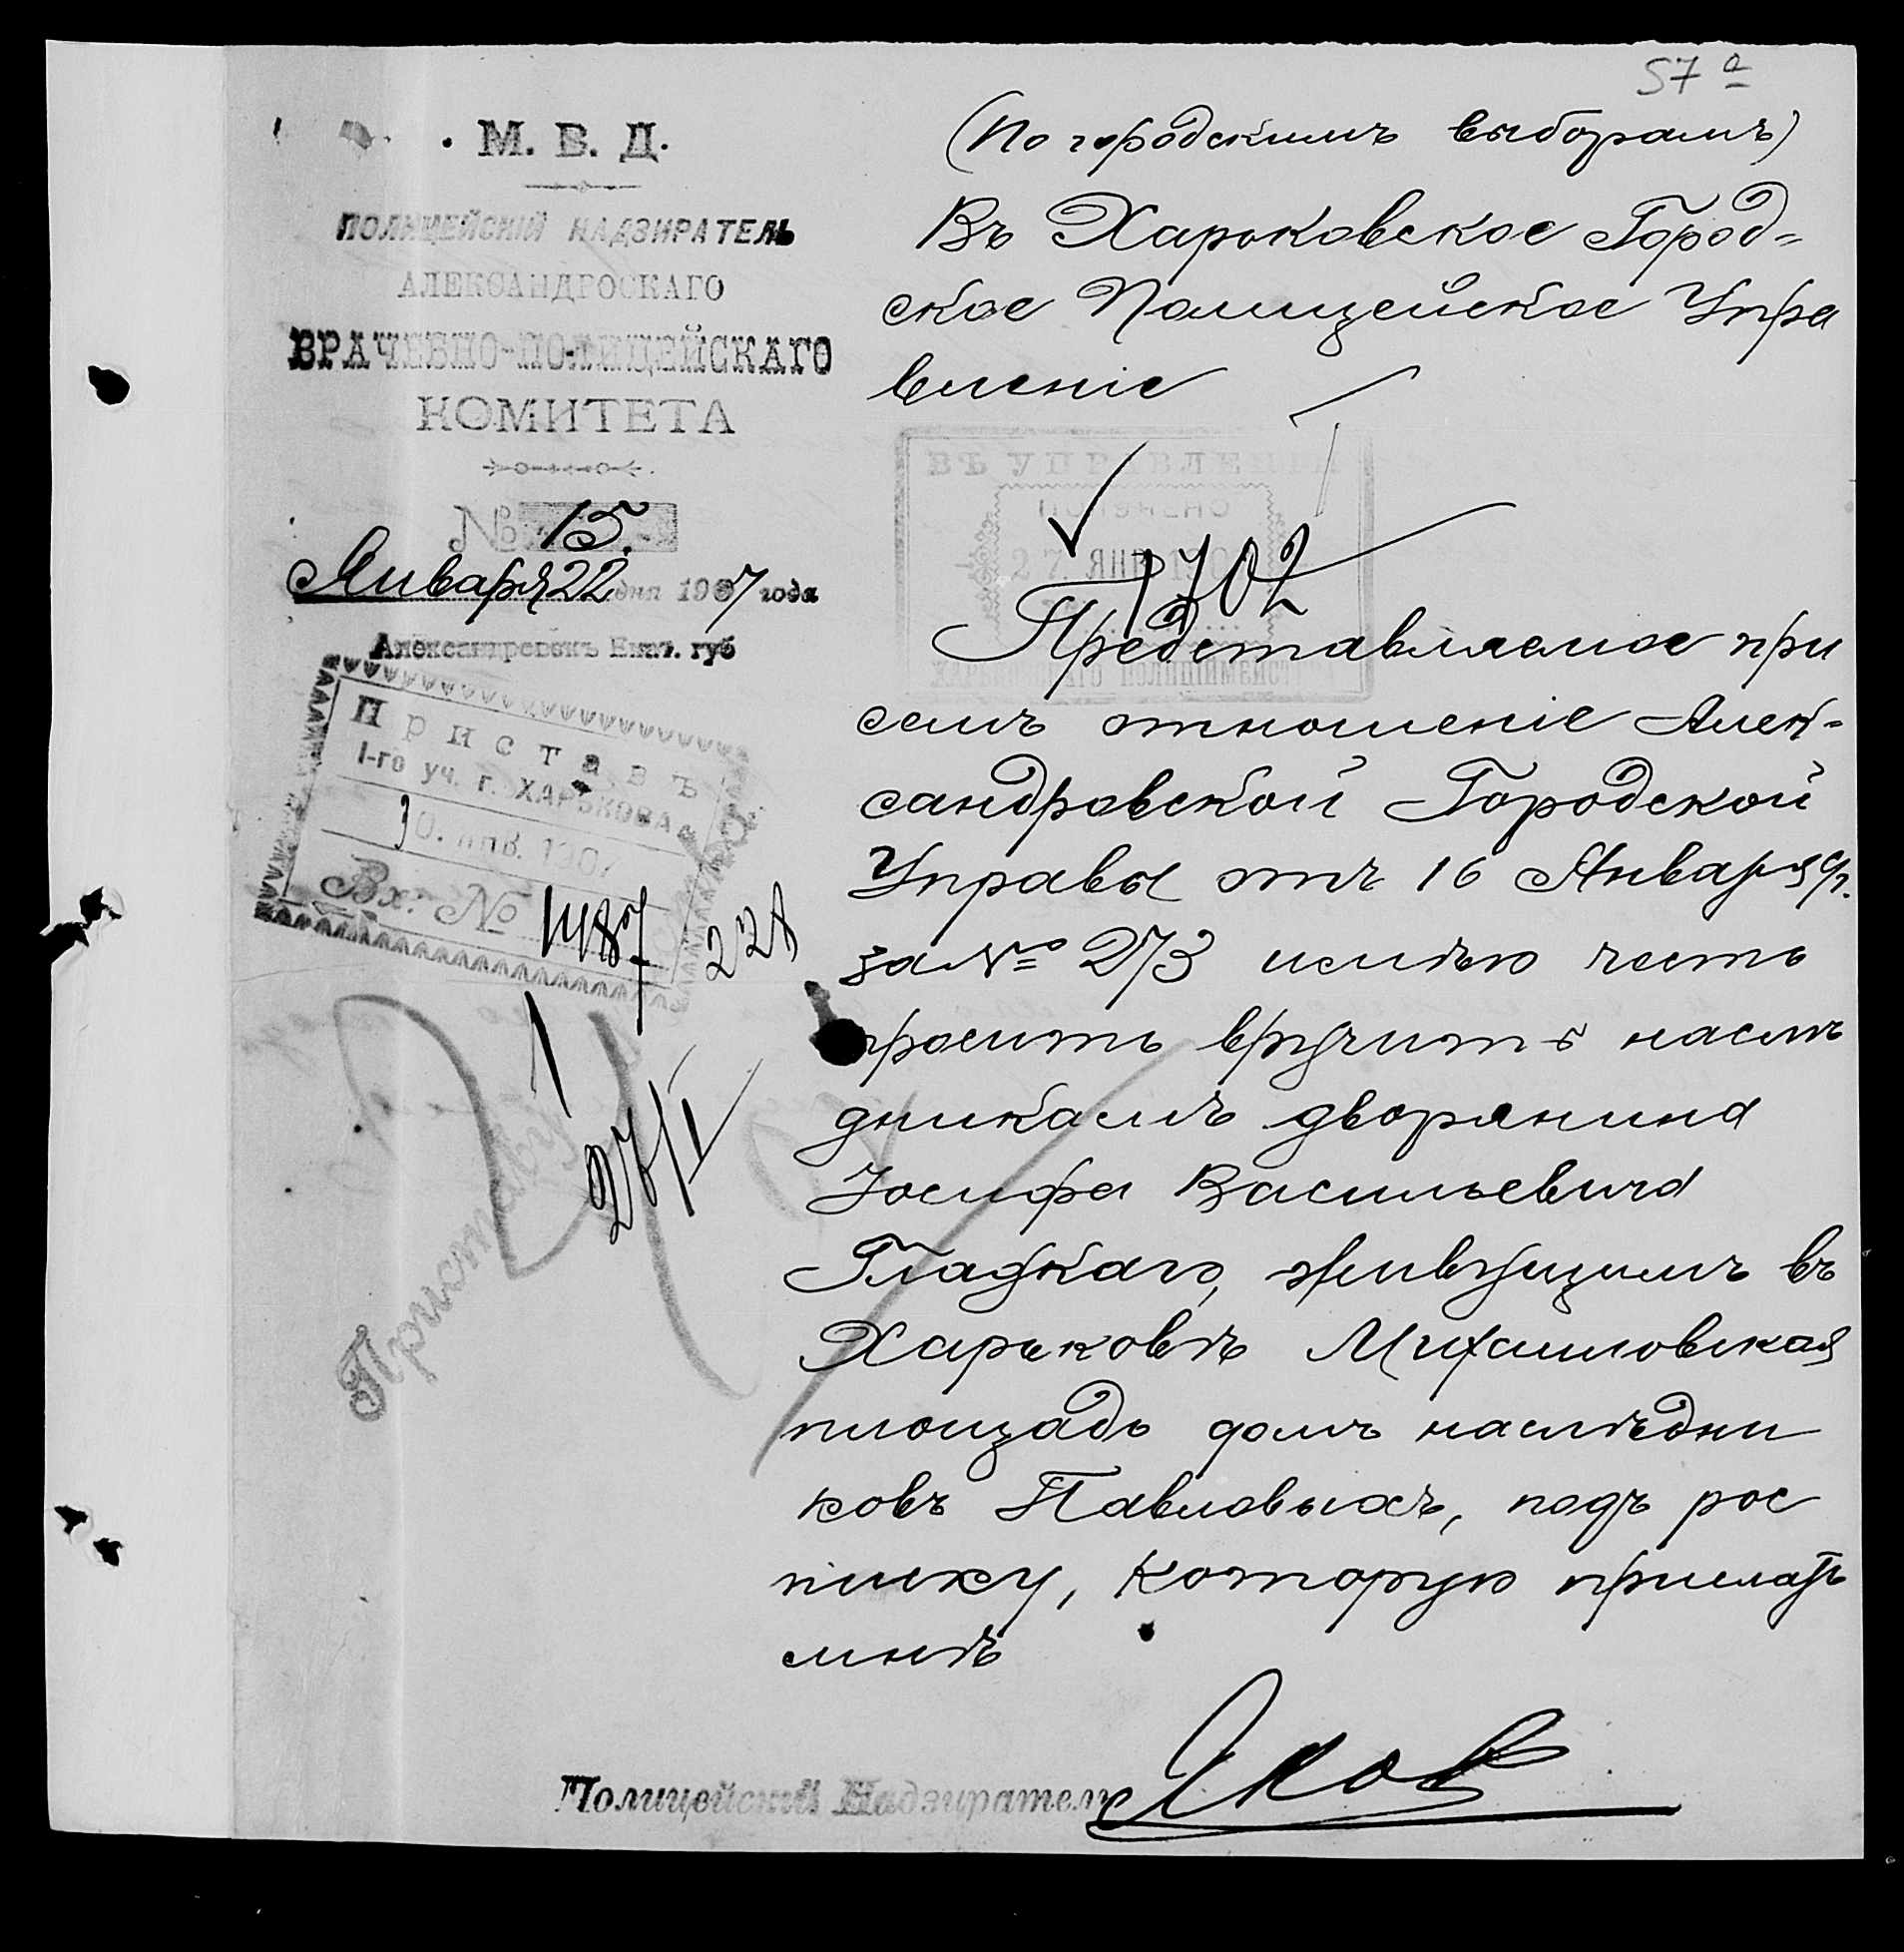 57 а
М. В. Д.
ПОЛИЦЕЙСКІЙ НАДЗИРАТЕЛЬ
АЛЕКСАНДРОСКАГО
ВРАЧЕБНО-ПОЛИЦЕЙСКАГО
КОМИТЕТА
№ 15.
Января 22 дня 1907 года
Александровскъ Екат. губ
Приставъ
1-го уч. г. ХАРЬКОВА
30. янв. 1907
Вх. № 1487
228
27/II
Приставу
(По городскимъ выборамъ)
Въ Харьковское Город=
ское Полицейское Упра
вленіе
ВЪ УПРАВЛЕНІИ
ПОЛУЧЕНО
27. ЯНВ 190
1702
ХАРЬКОВСКАГО ПОЛИЦІЙМЕЙСТ
Представляемое при
семъ отношеніе Алек-
сандровской Городской
Управы отъ 16 Января
за № 273 имѣю честь
просить вручить наслѣ
дникамъ дворянина
Іосифа Васильевича
Гладкаго, живущимъ въ
Харьковѣ Михайловская
площадь домъ наслѣдни
ковъ Павловыхъ, подъ рос
писку, которую прислать
мнѣ
Полицейскій Надзиратель